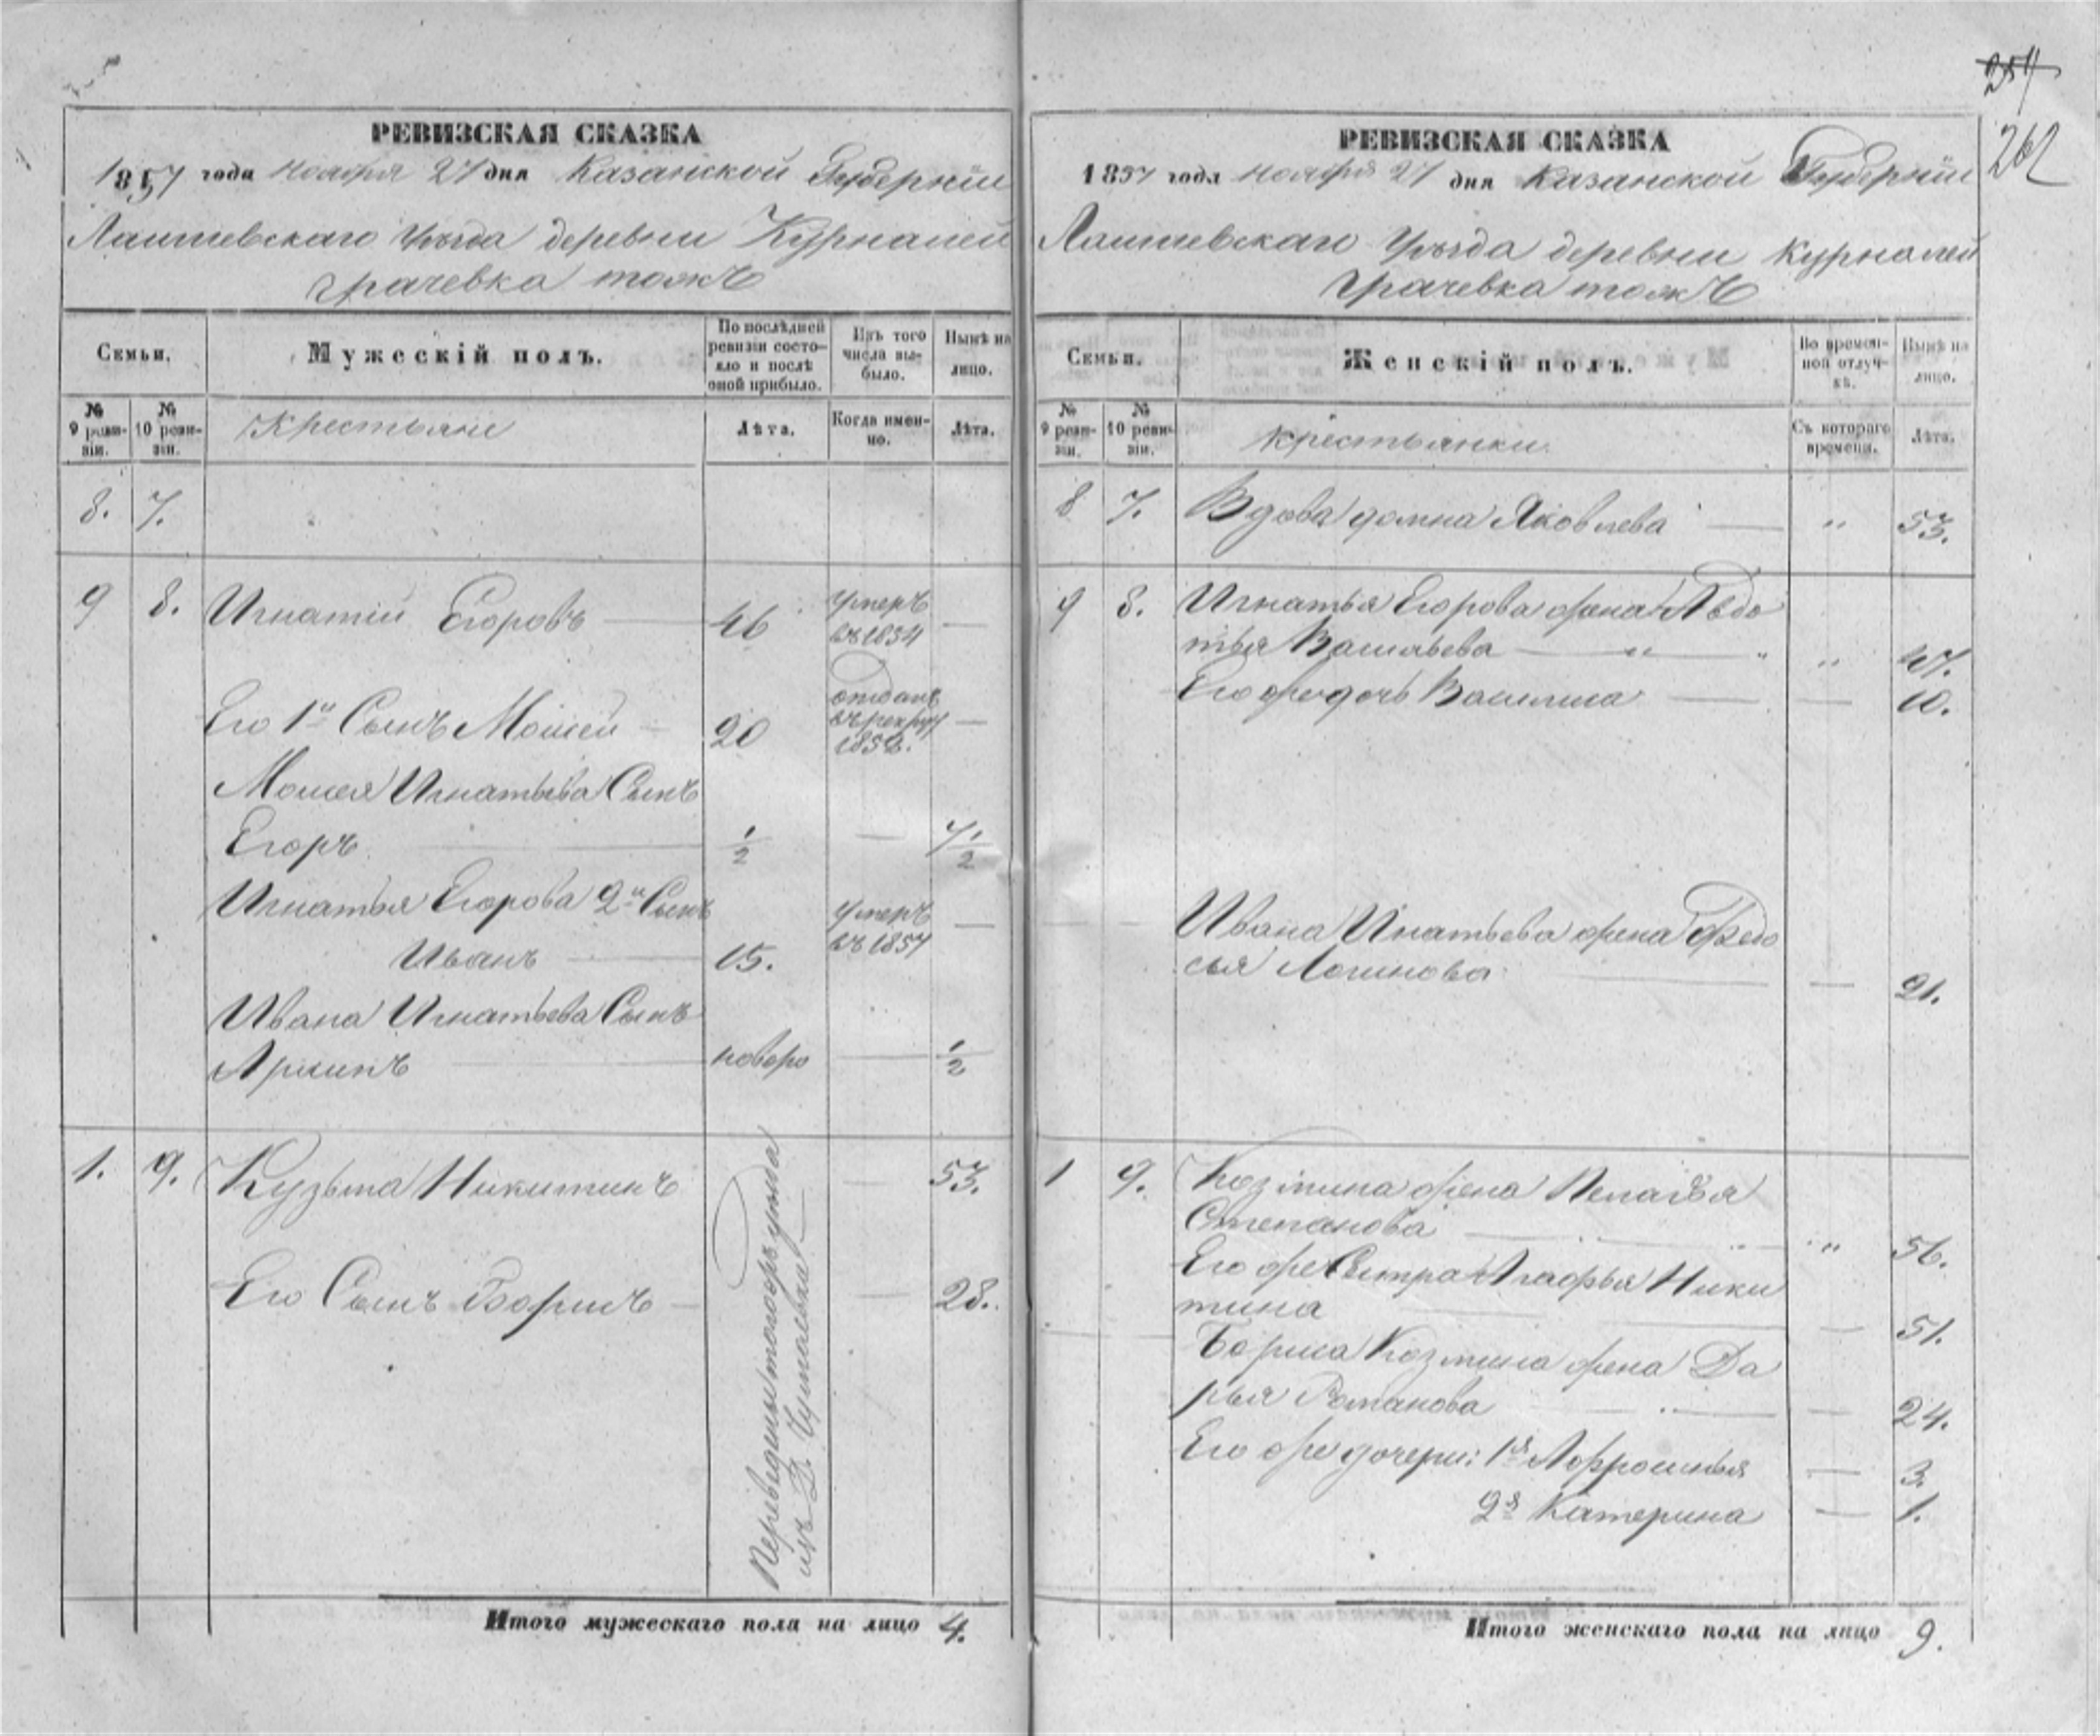 РЕВИЗСКАЯ СКАЗКА
1857 года ноября 27 дня Казанской Губерніи
Лаишевскаго Уѣзда деревни Курналей
Грачевка тожъ
Семьи.
Мужескій полъ.
По послѣдней ревизіи состояло и послѣ оной прибыло.
Изъ того числа выбыло.
Нынѣ на лицо.
№ 9 ревизіи.
№ 10 ревизіи.
Крестьяне
Лѣта.
Когда именно.
Лѣта.
8. 7.
9 8. Игнатій Егоровъ 46 умеръ въ 1854 —
Его 1й Сынъ Моисей — 20 отданъ въ рекруты 1852. —
Моисея Игнатьева Сынъ
Егоръ ½ — 7½
Игнатья Егорова 2й Сынъ
Иванъ — 15. умеръ въ 1857 —
Ивана Игнатьева Сынъ
Архипъ — новоро — ½
1. 9. Кузьма Никитинъ — 53.
Его Сынъ Борисъ — — 28.
изъ Д.
Итого мужескаго пола на лицо 4.
254
262
РЕВИЗСКАЯ СКАЗКА
1857 года ноября 27 дня Казанской Губерніи
Лаишевскаго Уѣзда деревни Курналей
Грачевка тожъ
Семьи.
Женскій полъ.
Во временной отлучкѣ.
Нынѣ на лицо.
№ 9 ревизіи.
№ 10 ревизіи.
крестьянки.
Съ котораго времени.
Лѣта.
8 7. Вдова Домна Яковлева — " 53.
9 8. Игнатья Егорова жена Авдо
тья Васильева — " — " " 47.
Его же дочь Василиса — — 10.
Ивана Игнатьева жена Федо
сья Логинова — — 21.
1 9. Козмина жена Пелагѣя
Степанова " 56.
Его же Сестра Агафья Ники
тина — — 51.
Бориса Козмина жена Да
рья Романова — — 24.
Его же дочери: 1я Афросинья — 3.
2я Катерина — 1.
Итого женскаго пола на лицо 9.